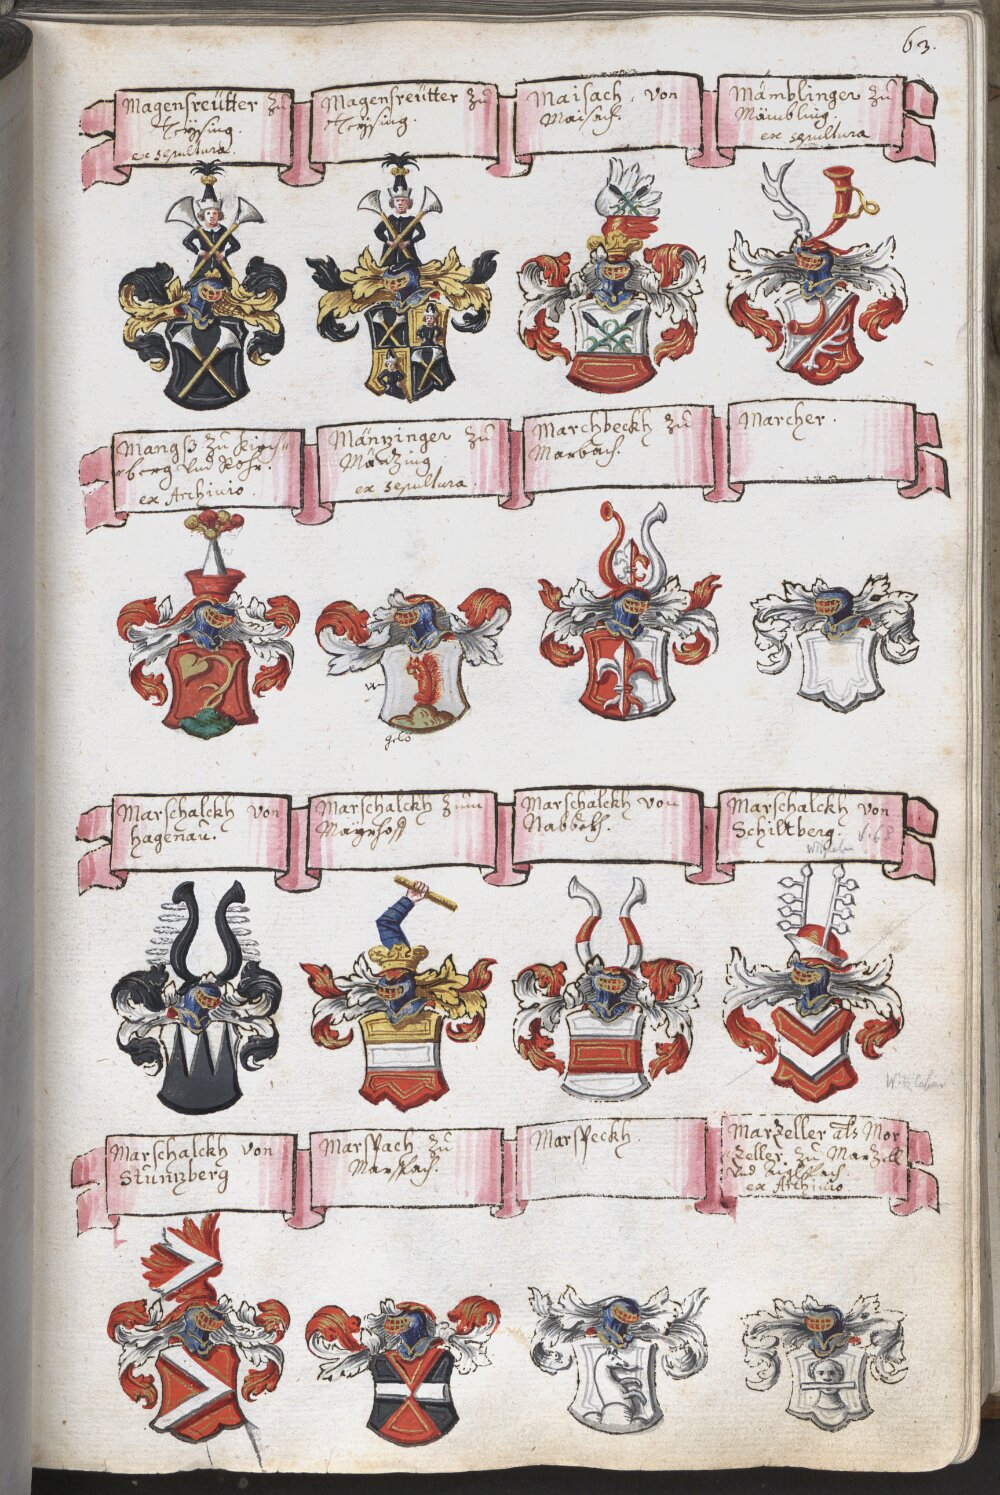 63.
Magensreütter zu
Teÿsing.
ex sepultura.
Magensreütter zu
Teÿsing.
Maisach von
Maisach.
Mämblinger zu
Mämbling.
ex sepultura
Mangß zu Kirch-
berg und Rohr.
ex Archivio.
Mänzinger zu
Mänzing.
ex sepultura.
Marchbeckh zu
Marbach.
Marcher.
W
gelb
Marschalckh von
Hagenau.
Marschalckh zum
Mayrhoff
Marschalckh von
Marschalckh von
Schiltberg. f. 68
Wilhelm
Marschalckh von
Stunzberg
Marspach zu
Marspach.
Marspeckh.
Marzeller als Mor
zeller zu Marzell
und
ex Archivio